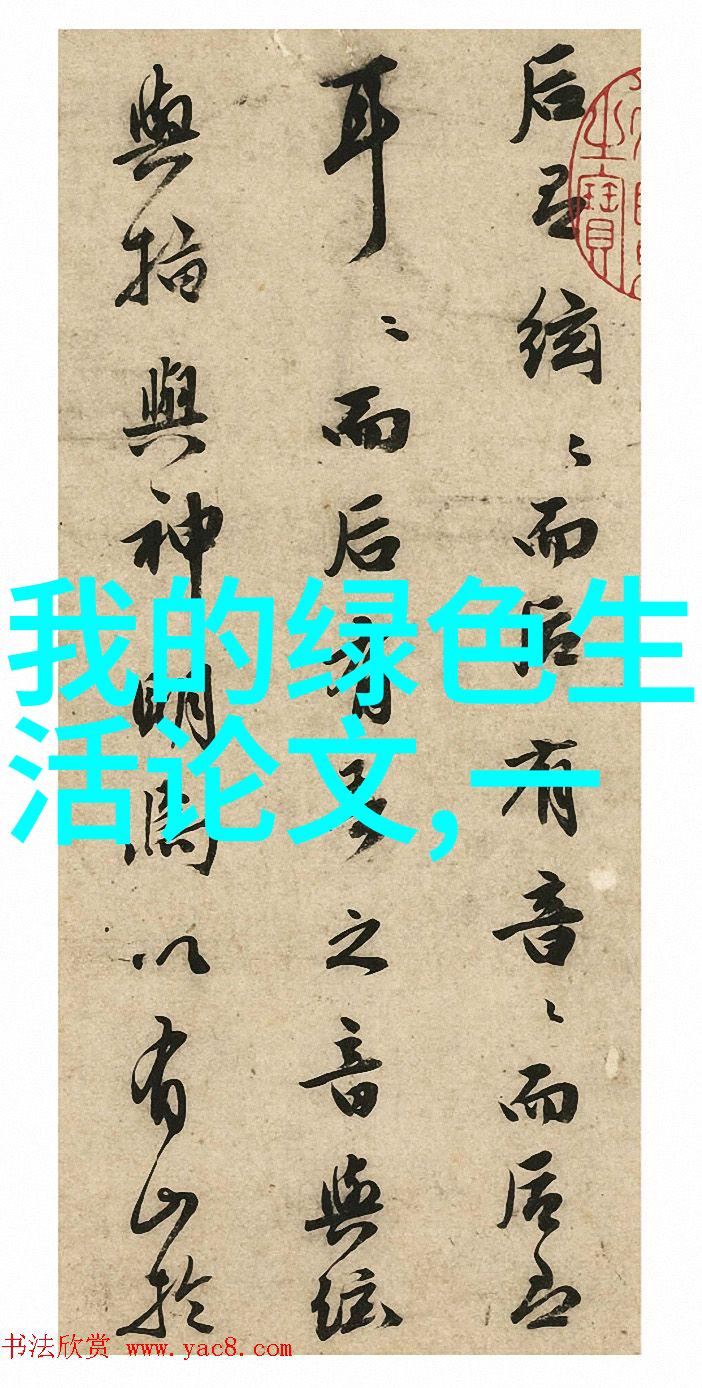 后絃〻而后有音〻而后
耳〻而后有之音與絃
與指與神明以有山於
之寶
我的绿色生
活论文,一
书法欣赏 www.yac8.com